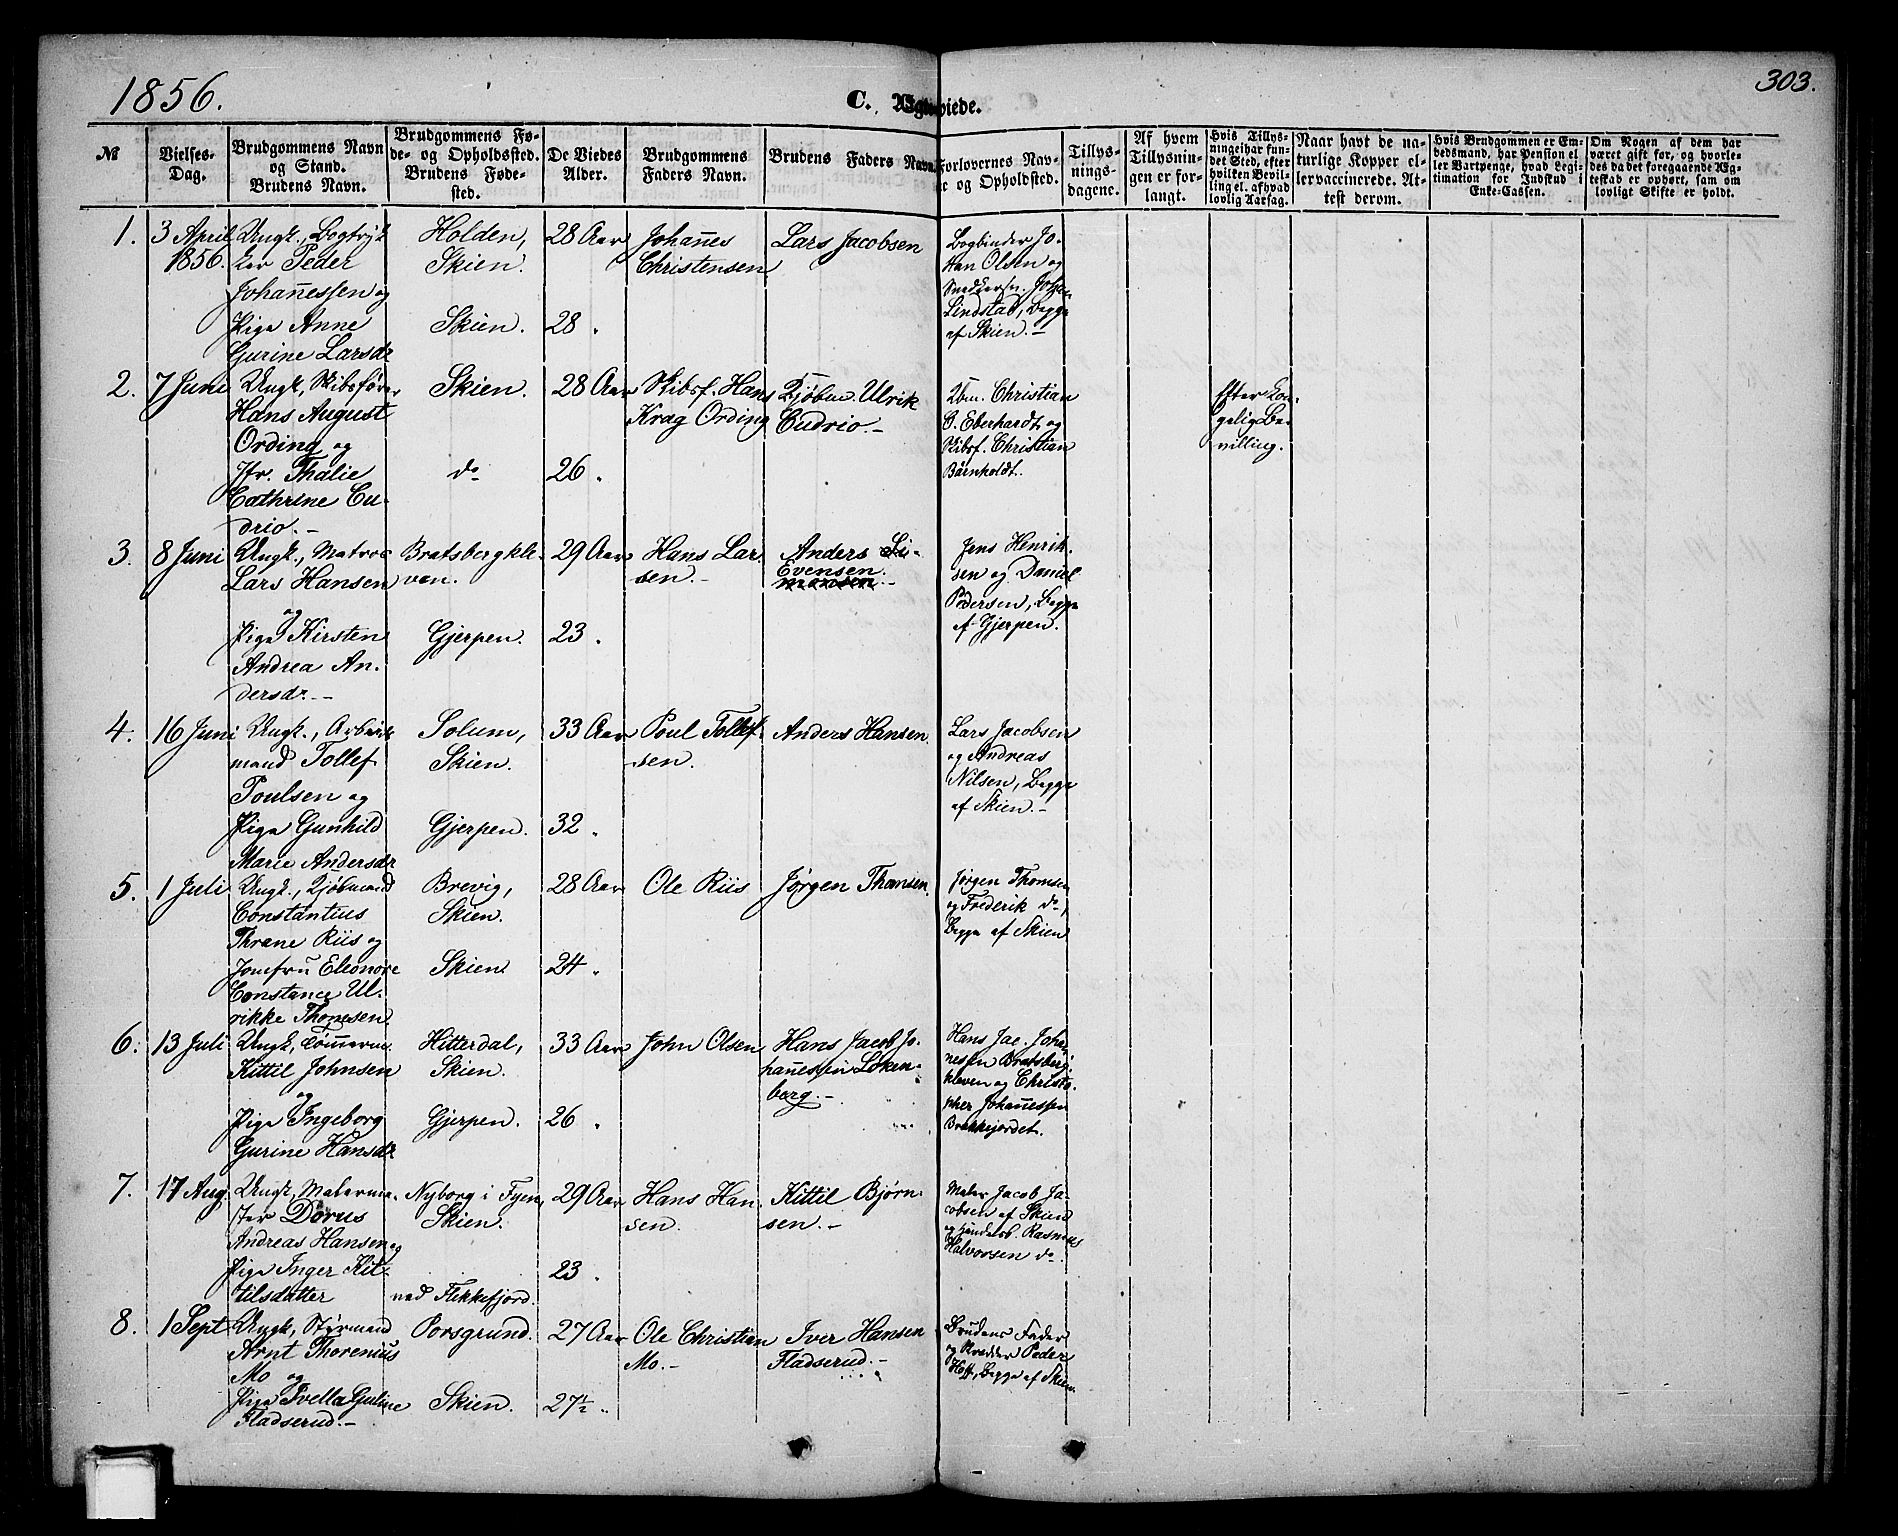 1856.
C. Ægteviede.
303.
№
Vielses-
Dag.
Brudgommens Navn
og Stand.
Brudens Navn.
Brudgommens Fø-
de- og Opholdssted.
Brudens Føde-
sted.
De Viedes
Alder.
Brudgommens
Faders Navn.
Brudens Faders Navn.
Forlovernes Nav-
ne og Opholdsted.
Tillys-
nings-
dagene.
Af hvem
Tillysnin-
gen er for-
langt.
Hvis Tillys-
ningei har fun-
det Sted, efter
hvilken Bevil-
ling el. afhvad
lovlig Aarsag.
Naar havt de na-
turlige Kopper el-
ler vaccinerede. At-
test derom.
Hvis Brudgommen er Em-
bedsmand, har Pension el-
ler Vartpenge, hvad Legi-
timation for Indskud i
Enke-Cassen.
Om Nogen af dem har
været gift før, og hvorle-
des da det foregaaende Æg-
teskab er ophørt, sam om
lovligt Skifte er holdt.
1.
3 April
1856.
Ungk., Bogtryk
ker Peder
Johannessen og
Pige Anne
Gurine Larsdr
Holden,
Skien.
Skien.
28 Aar
28 "
Johannes
Christensen
Lars Jacobsen
Bogbinder Jo-
han Olsen og
Snedkersv. Johan
Lindstad, begge
af Skien.-
2.
7 Juni
Ungk., Skibsfører
Hans August
Ording og
Jfr. Thalie
Cathrine Cu-
drio.-
Skien.
do
28 Aar
26 "
Skibsf. Hans
Krag Ording
Kjøbm. Ulrik
Cudrio.-
Kbm. Christian
C. Eberhardt og
Skibsf. Christian
Bärnholdt.
Efter kon-
gelig Be-
villing.
3.
8 Juni
Ungk., Matros
Lars Hansen
og
Pige Kirsten
Andrea An-
dersdr.-
Bratsbergkle-
ven.
Gjerpen.
29 Aar
23 "
Hans Lar-
sen.-
Anders Si-
Evensen.
monsen.-
Jens Henrik-
sen og Daniel
Pedersen, begge
af Gjerpen.
4.
16 Juni
Ungk., Arbeids
mand Tollef
Poulsen og
Pige Gunhild
Marie Andersdr
Solum,
Skien.
Gjerpen.
33 Aar
32 "
Poul Tollef-
sen.
Anders Hansen.
Lars Jacobsen
og Andreas
Nilsen, begge
af Skien.-
5.
1 Juli
Ungk., Kjøbmand
Constantius
Thrane Riis og
Jomfru Eleonore
Constance Ul-
rikke Thomsen
Brevig,
Skien.
Skien.
28 Aar
24 "
Ole Riis
Jørgen Thomsen.
Jørgen Thomsen
og Frederik do,
begge af Skien
6.
13 Juli
Ungk., Tømmerm.
Kittil Johnsen
og
Pige Ingeborg
Gurine Hansdr
Hitterdal,
Skien.
Gjerpen.
33 Aar
26 "
John Olsen
Hans Jacob Jo-
hannessen Løken-
berg.-
Hans Jac. Johan
nessen Bratsberg-
kleven og Christo-
pher Johannessen
Brekkejordet.
7.
17 Aug.
Ungk., Malerme-
ster Dorus
Andreas Hansen og
Pige Inger Kit-
tilsdatter
Nyborg i Fyen,
Skien.
ved Flekkefjord.
29 Aar
23 "
Hans Han-
sen.
Kittil Bjørn-
sen.-
Maler Jacob Ja-
cobsen af Skien
og Rasmus
Halvorsen do
8.
1 Sept
Ungk., Styrmand
Arnt Thorenius
Mo og
Pige Gurine
Fladserud.-
Porsgrund.
Skien.
27 Aar
27½ "
Ole Christian
Mo.-
Iver Hansen
Fladserud.-
Brudens Fader
og Skredder Peder
Hoff, begge af Skien.